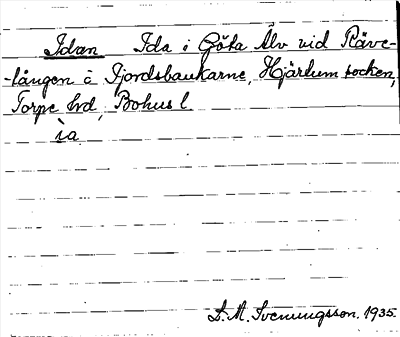 Idan Ida i Göta Älv vid Räve-
-långon å Fjordsbankarne, Hjärtum socken,
Torpe hd, Bohus l
ìa
A. M. Svenungsson. 1935.